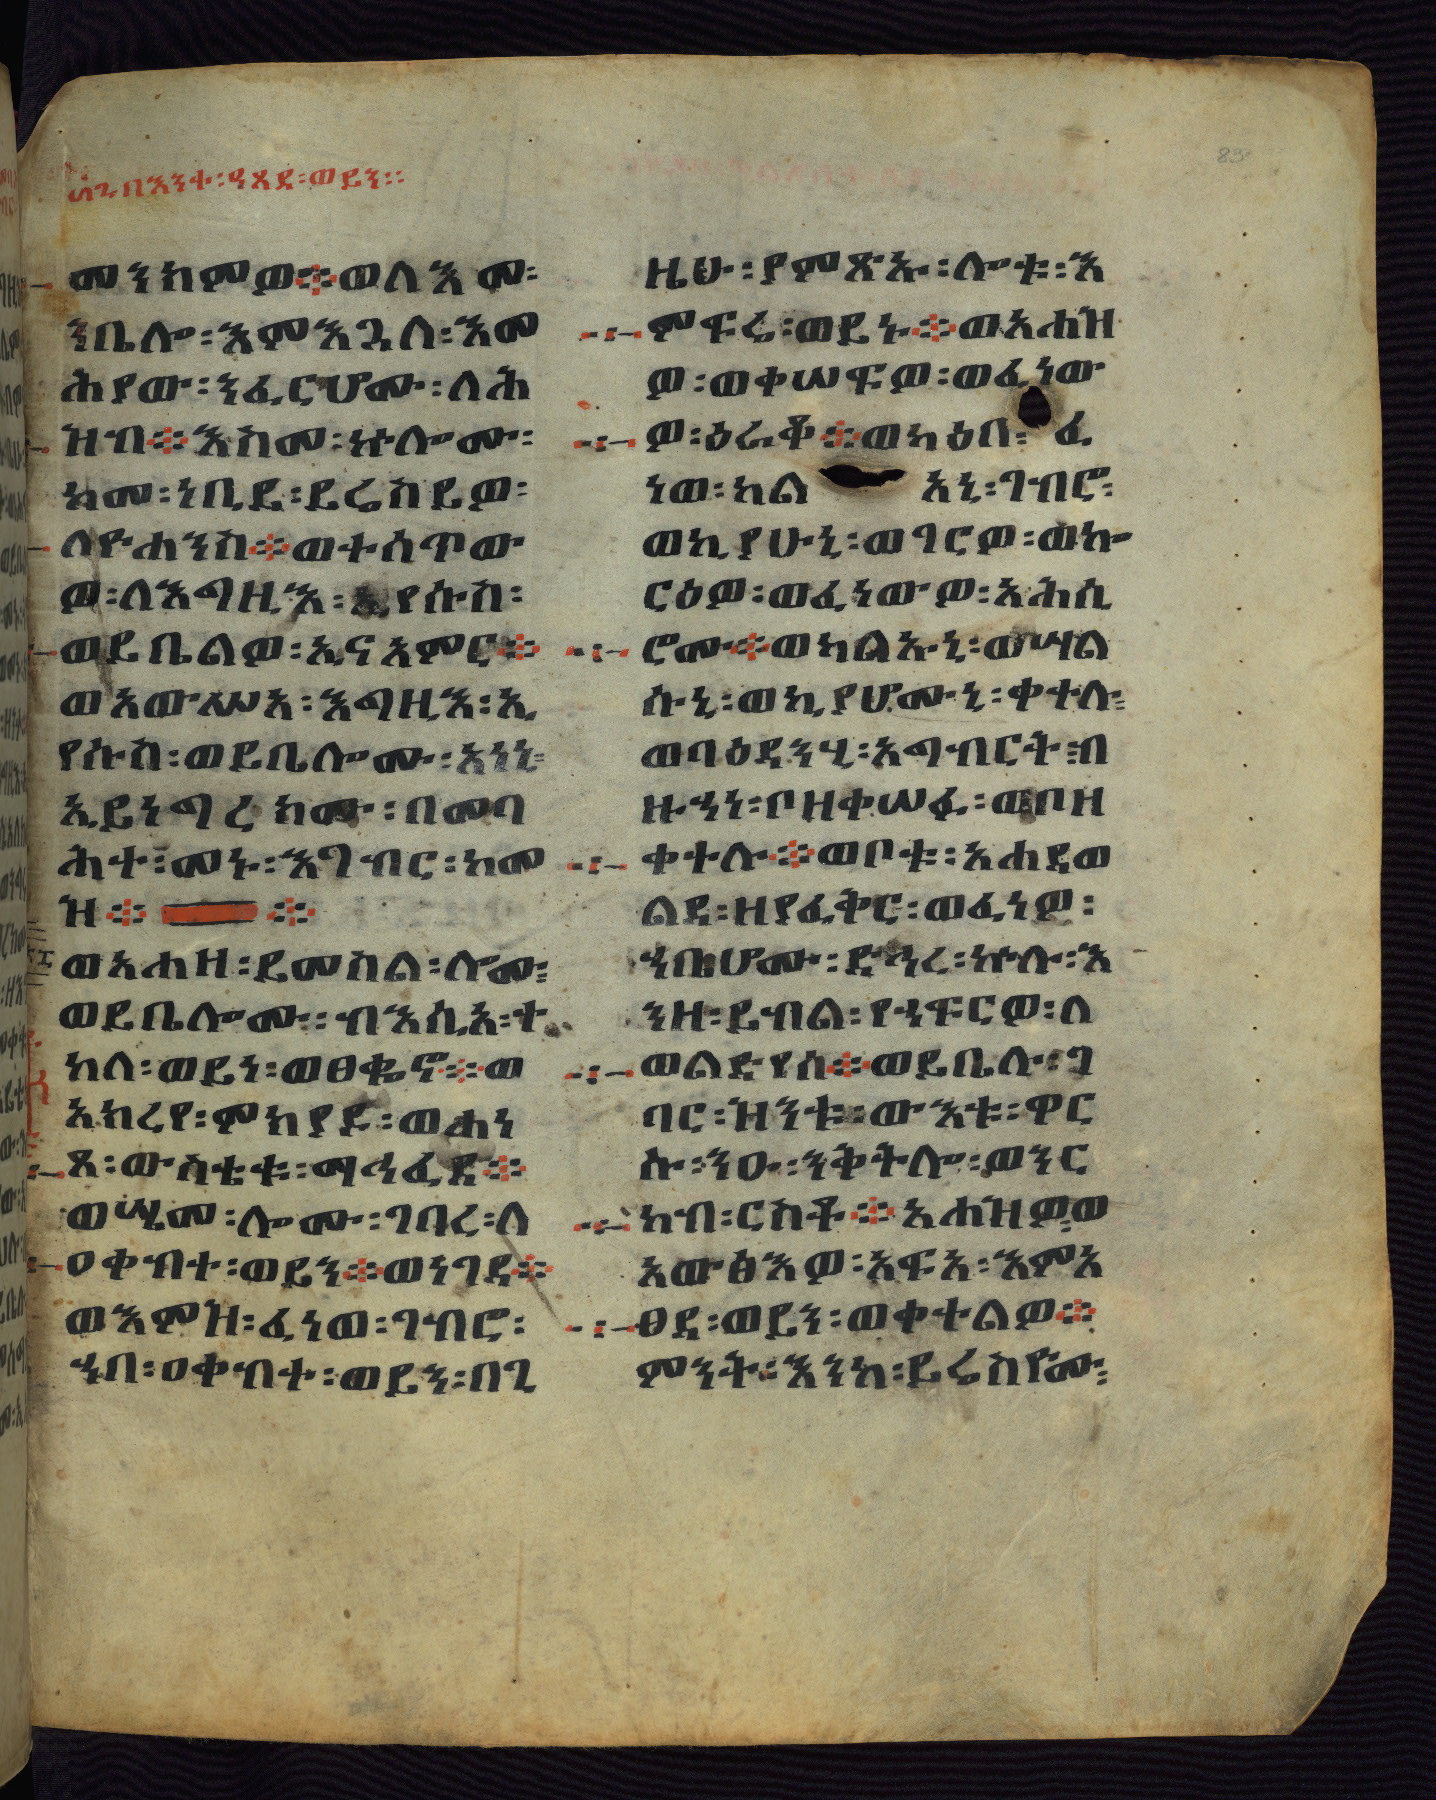 በእንተ፡ዓጸደ፡ወይን፡፡
መንከምወ፨ወለእመ፡
ንቤሎ፡እምእጓለ፡እመ
ሕያው፡ንፈርሆሙ፡ለሕ
ዝብ፨እስመ፡ኵሎሙ፡
ከመ፡ነቢይ፡ይሬስይዎ፡
ለዮሐንስ፨ወተሰጥው
ዎ፡ለእግዚእ፡ኢየሱስ፡
ወይቤልዎ፡ኢናአምር፨
ወአውሥአ፡እግዚእ፡ኢ
የሱስ፡ወይቤሎሙ፡አነኒ፡
ኢይነግረክሙ፡በመባ
ሕተ፡መኑ፡እገብር፡ከመ
ዝ፨ ፨
ወአሐዘ፡ይመስል፡ሎሙ፡
ወይቤሎሙ፡ብእሲአ፡ተ
ከለ፡ወይነ፡ወፀቈኖ፨ወ
አከረየ፡ምክያደ፡ወሐነ
ጸ፡ውስቴቱ፡ማኅፈደ፨
ወሤመ፡ሎሙ፡ገባረ፡ለ
ዐቀብተ፡ወይን፨ወነገደ፨
ወእምዝ፡ፈነወ፡ገብሮ፡
ኀበ፡ዐቀብተ፡ወይን፡በጊ
ዜሁ፡ያምጽኡ፡ሎቱ፡እ
ምፍሬ፡ወይኑ፨ወአሐዝ
ዎ፡ወቀሠፍዎ፡ወፈነው
ዎ፡ዕራቆ፨ወካዕበ፡ፈ
ነወ፡ካልአነ፡ገብሮ፡
ወኪያሁኒ፡ወገርዎ፡ወከ
ርዕዎ፡ወፈነውዎ፡አሕሲ
ሮሙ፨ወካልኡኒ፡ወሣል
ሱኒ፡ወኪያሆሙኒ፡ቀተሉ፡
ወባዕዳንሂ፡አግብርት፡ብ
ዙኀነ፡ቦዘቀሠፉ፡ወቦዘ
ቀተሉ፨ወቦቱ፡አሐደወ
ልደ፡ዘያፈቅር፡ወፈነዎ፡
ኀቤሆሙ፡ድኅረ፡ኵሉ፡እ
ንዘ፡ይብል፡የኀፍርዎ፡ለ
ወልድየሰ፨ወይቤሉ፡ገ
ባር፡ዝንቱ፡ውእቱ፡ዋር
ሱ፡ንዑ፡ንቅትሎ፡ወንር
ከብ፡ርስቶ፨አሐዝዎ፡ወ
አውፅእዎ፡አፍአ፡እምአ
ፀደ፡ወይን፡ወቀተልዎ፨
ምንት፡እንከ፡ይሬስዮሙ፡